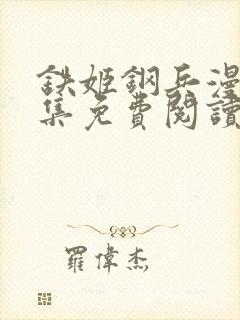 鉄姬鋼兵漫
集免費閱讀
羅偉杰